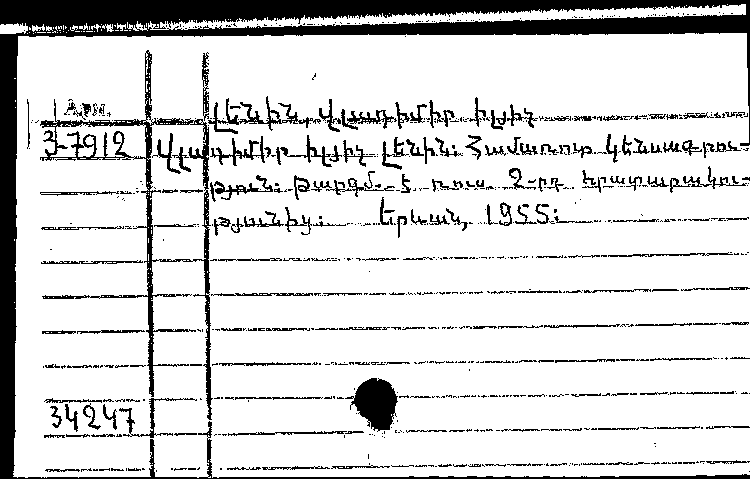 Арм.
Լենին, Վլադիմիր Իլյիչ
3-7912 Վլադիմիր Իլյիչ Լենին: Համառոտ կենսագրու-
թյուն: Թարգմ. է ռուս. 2-րդ հրատարակու-
թյունից: Երևան, 1955:
34247